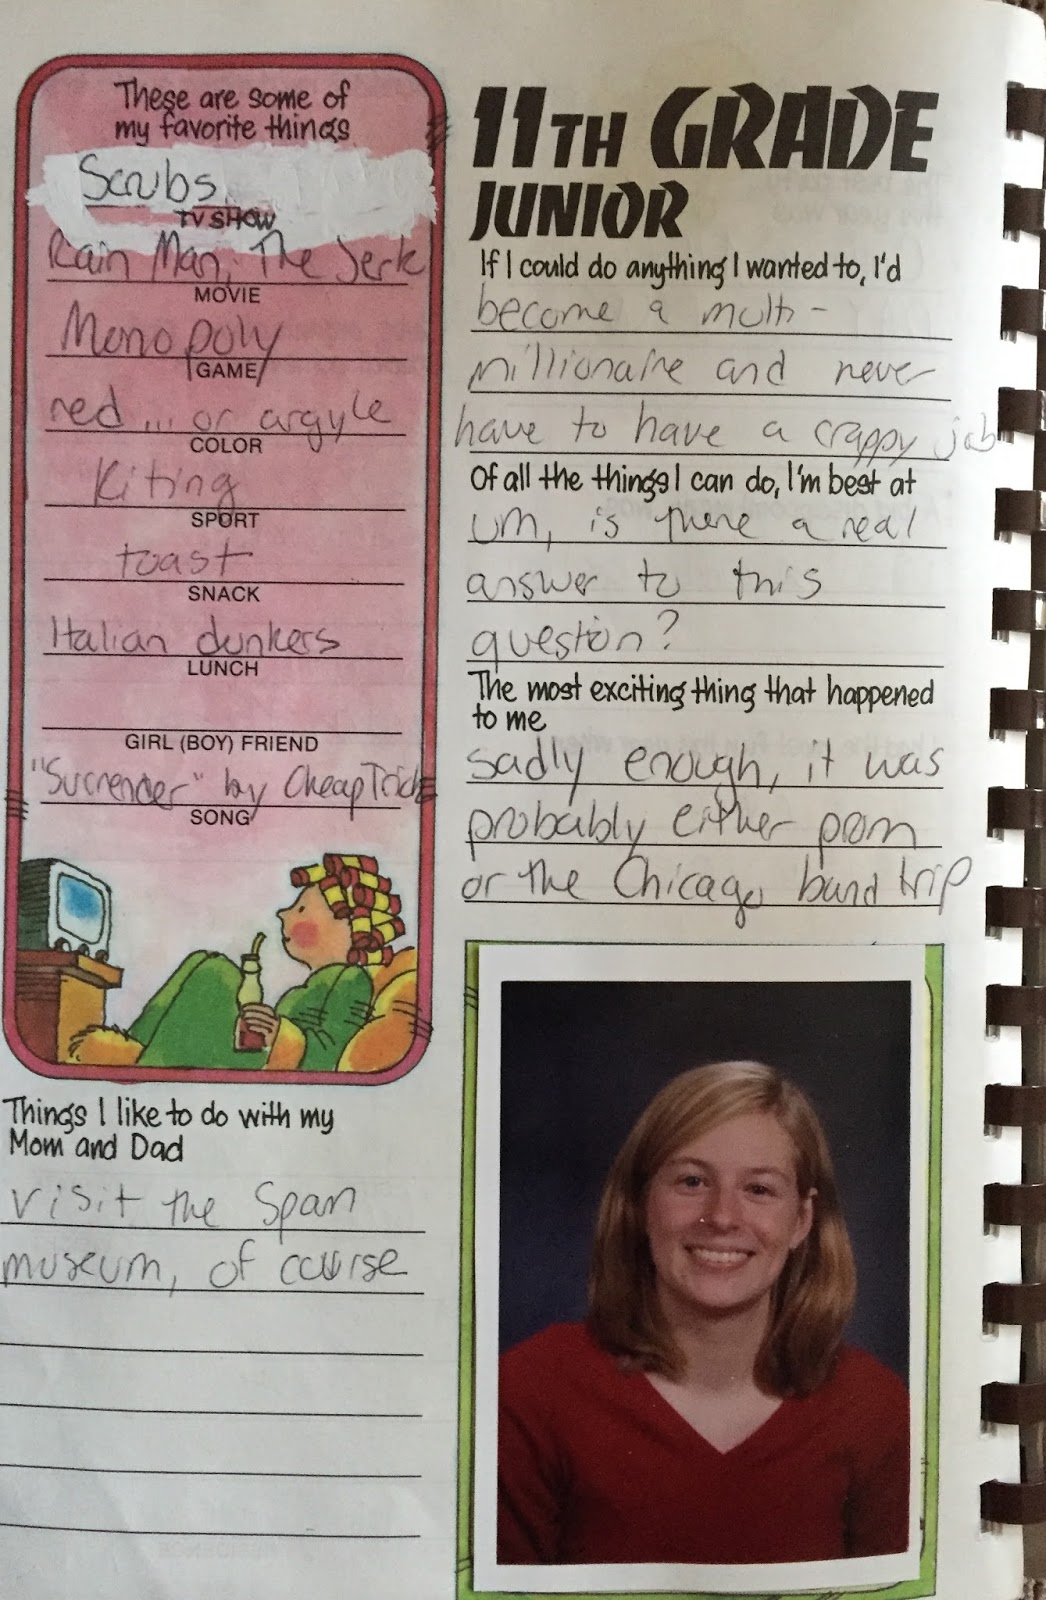 These are some of
my favorite things
Scrubs
TV SHOW
Rain Man, The Jerk
MOVIE
Monopoly
GAME
red ... or argyle
COLOR
Kiting
SPORT
toast
SNACK
Italian dunkers
LUNCH
GIRL (BOY) FRIEND
"Surrender" by Cheap Trick
SONG
Things I like to do with my
Mom and Dad
visit the Spam
museum, of course
11TH GRADE
JUNIOR
If I could do anything I wanted to, I'd
become a multi-
millionaire and never
have to have a crappy job
Of all the things I can do, I'm best at
um, is there a real
answer to this
question?
The most exciting thing that happened
to me
sadly enough, it was
probably either prom
or the Chicago band trip